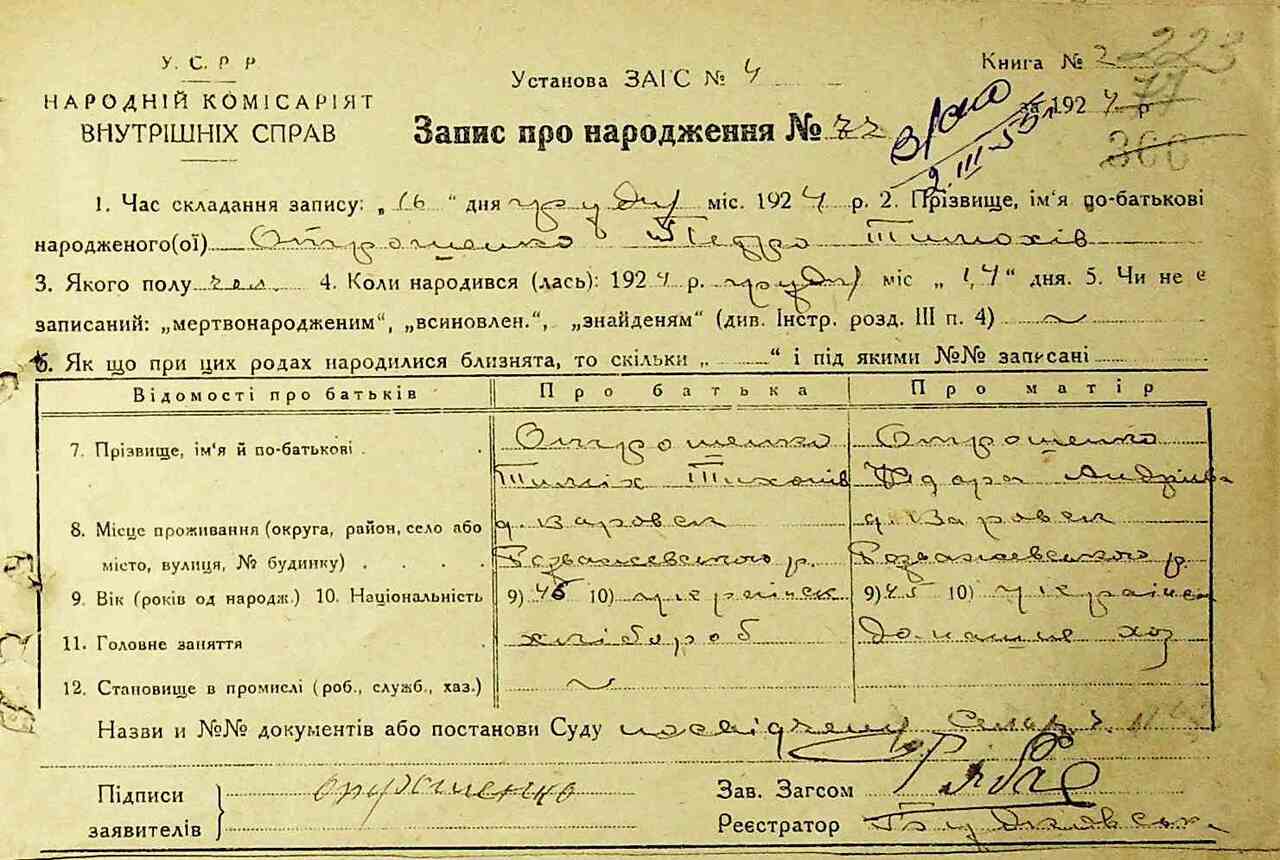 У. С. Р Р
НАРОДНІЙ КОМІСАРІЯТ
ВНУТРІШНІХ СПРАВ
Установа ЗАГС № 4
Книга № 2 223
за 1924 р. 71
366
Запис про народження № 77
9.III-55
1. Час складання запису: „16“ дня грудня міс. 1924 р. 2. Прізвище, ім'я по-батькові
народженого(ої) Отрошенко Педро Тимохів
3. Якого полу чол. 4. Коли народився (лась): 1924 р. грудня міс „14“ дня. 5. Чи не є
записаний: „мертвонародженим“, „всиновлен.“, „знайденям“ (див. Інстр. розд. III п. 4)
6. Як що при цих родах народилися близнята, то скільки „ “ і під якими №№ записані
Відомості про батьків Про батька Про матір
7. Прізвище, ім'я й по-батькові Отрошенко Отрошенко
Тиміх Тихонів Федора Андрієва
8. Місце проживання (округа, район, село або с. Варовск с. Варовск
місто, вулиця, № будинку) Розважевського р. Розважевського р.
9. Вік (років од народж.) 10. Національність 9) 46 10) українск 9) 45 10) українск
11. Головне заняття хлібороб домашне хоз
12. Становище в промислі (роб., служб., хаз.)
Назви и №№ документів або постанови Суду
Підписи
заявителів Отрошенко
Зав. Загсом
Реєстратор